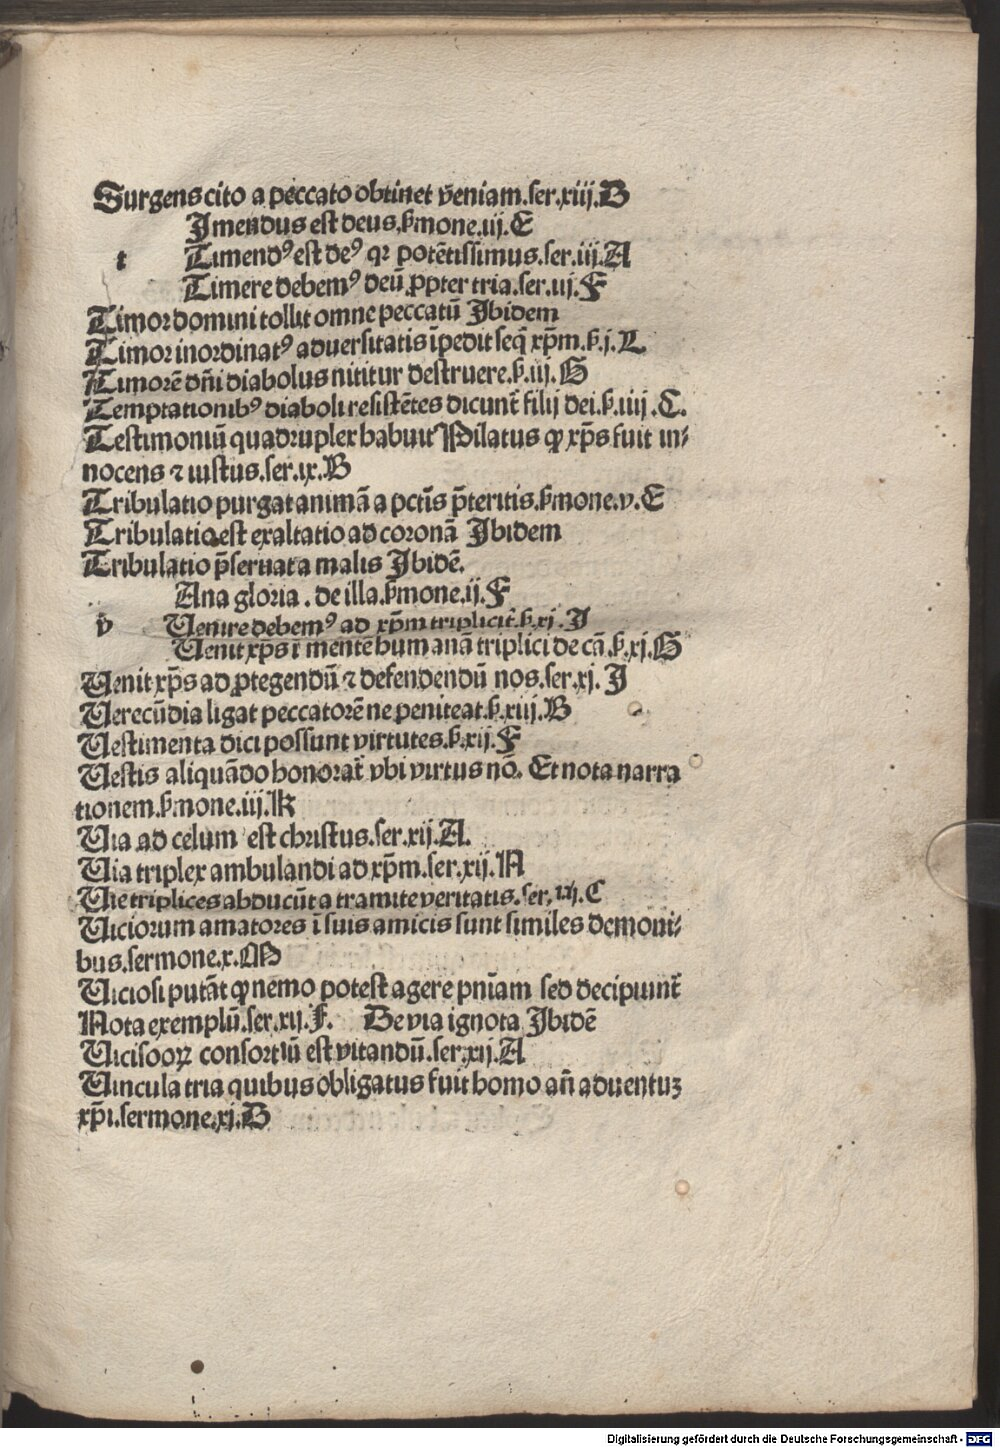 Surgens cito a peccato obtinet veniam.ser.xiij.D
Imendus est deus.ẜmone.iij.E
t Timendꝰ est deꝰ qꝛ potētissimus.ser.iij.A
Timere debemꝰ deū ꝓpter tria.ser.iij.F
Timor domini tollit omne peccatū Ibidem
Timor inordinatꝰ aduersitatis īpedit seq̄ xp̄m.ẜ.j.L
Timorē dn̄i diabolus nititur destruere.ẜ.iij.G
Temptationibꝰ diaboli resistētes dicunt̄ filij dei.ẜ.iiij.C.
Testimoniū quadruplex habuit Pilatus ꝙ xp̄s fuit in⸗
nocens ⁊ iustus.ser.ix.B
Tribulatio purgat animā a pctīs p̄teritis.ẜmone.v.E
Tribulatio est exaltatio ad coronā Ibidem
Tribulatio p̄seruat a malis Ibidē.
Ana gloria. de illa.ẜmone.ij.F
v Uenire debemꝰ ad xp̄m triplicit̄.ẜ.xj.I
Uenit xp̄s ī mentē humanā triplici de cā.ẜ.xj.G
Uenit xp̄s ad ꝓtegendū ⁊ defendendū nos.ser.xj.I
Uerecūdia ligat peccatorē ne peniteat.ẜ.xiij.B
Uestimenta dici possunt virtutes.ẜ.xij.F
Uestis aliquādo honorat̄ vbi virtus nō. Et nota narra
tionem.ẜmone.iij.K
Uia ad celum est christus.ser.xij.A.
Uia triplex ambulandi ad xp̄m.ser.xij.N
Uie triplices abducūt a tramite veritatis.ser.iij.C
Uiciorum amatores ī suis amicis sunt similes demoni⸗
bus.sermone.x.M
Uiciosi putāt ꝙ nemo potest agere pn̄iam sed decipiunt̄
Nota exemplū.ser.xij.F. De via ignota Ibidē
Uicisooꝝ consortiū est vitandū.ser.xij.A
Uincula tria quibus obligatus fuit homo an̄ aduentuꝫ
xp̄i.sermone.xj.D
Digitalisierung gefördert durch die Deutsche Forschungsgemeinschaft - DFG